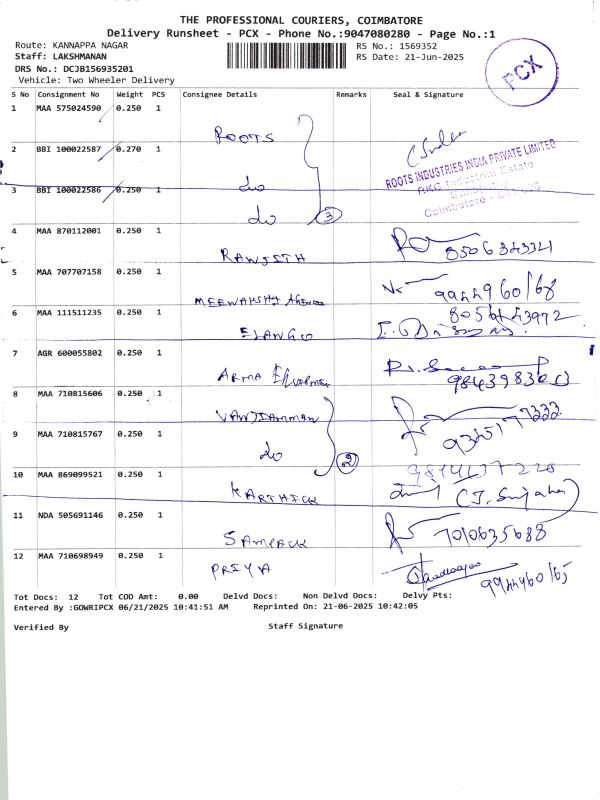 THE PROFESSIONAL COURIERS, COIMBATORE
Delivery Runsheet - PCX - Phone No.:9047080280 - Page No.:1
Route: KANNAPPA NAGAR
RS No.: 1569352
Staff: LAKSHMANAN
RS Date: 21-Jun-2025
DRS No.: DCJB156935201
Vehicle: Two Wheeler Delivery
PCX
S No Consignment No Weight PCS Consignee Details Remarks Seal & Signature
1 MAA 575024590 0.250 1 ROOTS
2 BBI 100022587 0.270 1 do
ROOTS INDUSTRIES INDIA PRIVATE LIMITED
RKG Industrial Estate
Coimbatore
3 BBI 100022586 0.250 1 do 3
4 MAA 870112001 0.250 1 RANJITH 8506343321
5 MAA 707707158 0.250 1 MEENAKSHI 9944960168
6 MAA 111511235 0.250 1 ELANGO
7 AGR 600055802 0.250 1 ARMA
8 MAA 710815606 0.250 1 VANJIAMMAN
9 MAA 710815767 0.250 1 do 2
10 MAA 869099521 0.250 1 KARTHICK
11 NDA 505691146 0.250 1 SAMPACK 7010635688
12 MAA 710698949 0.250 1 PRIYA 9944960165
Tot Docs: 12 Tot COD Amt: 0.00 Delvd Docs: Non Delvd Docs: Delvy Pts:
Entered By :GOWRIPCX 06/21/2025 10:41:51 AM Reprinted On: 21-06-2025 10:42:05
Verified By Staff Signature